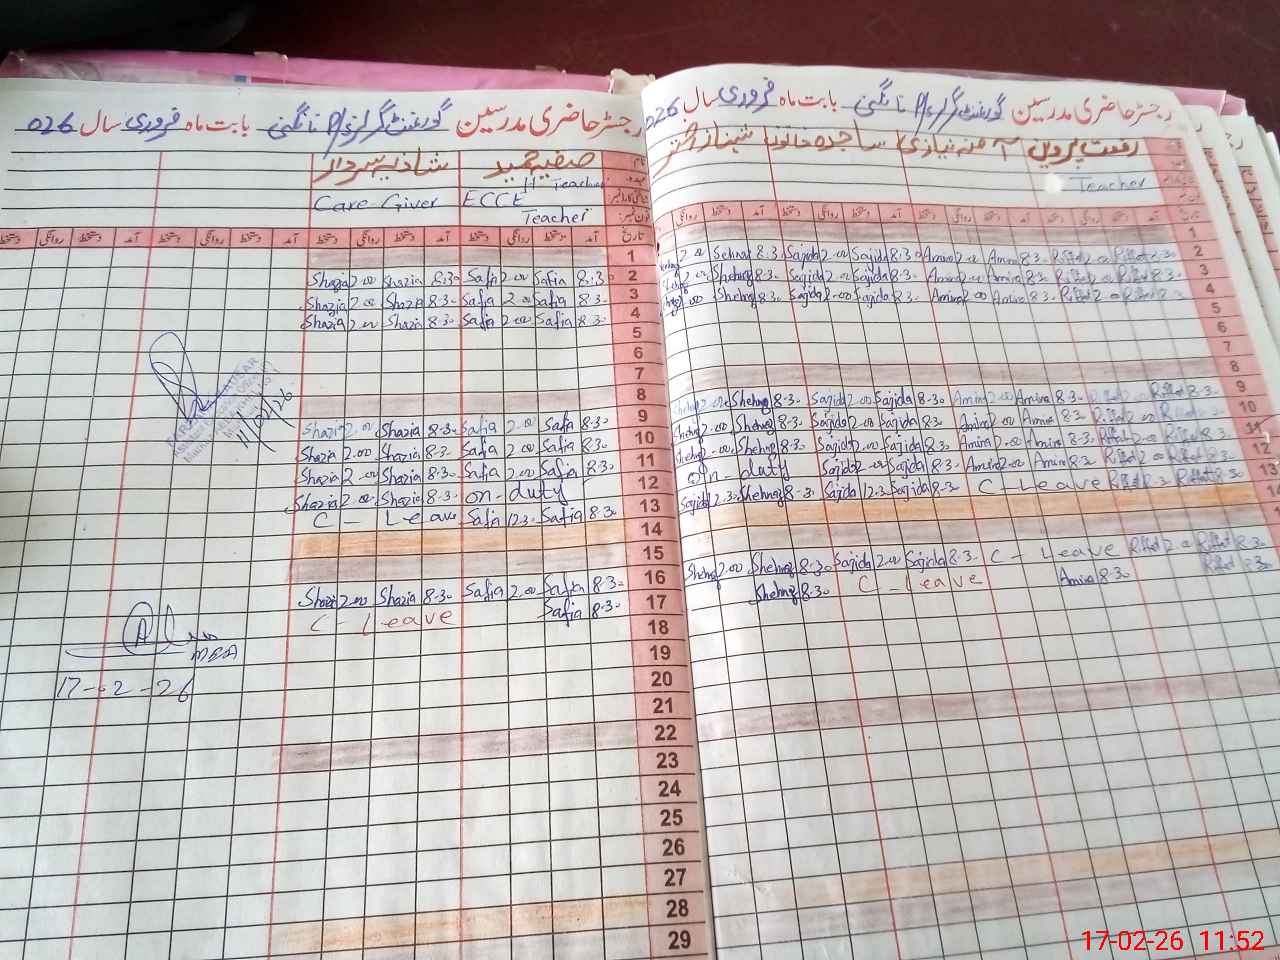 رجسٹر حاضری مدرسین گورنمنٹ گرلز P/S نانگنی بابت ماہ فروری سال 026
صفیہ حمید شازیہ سردار
Teacher
Care Giver ECCE
Teacher
تاریخ آمد دستخط روانگی دستخط آمد دستخط روانگی دستخط آمد دستخط روانگی دستخط آمد دستخط روانگی
1
Shazia 2.00 Shazia 8:30 Safia 2.00 Safia 8:30 2
Shazia 2.00 Shazia 8.30 Safia 2.00 Safia 8.30 3
Shazia 2.00 Shazia 8.30 Safia 2.00 Safia 8.30 4
5
6
7
8
Shazia 2.00 Shazia 8.30 Safia 2.00 Safia 8.30 9
Shazia 2.00 Shazia 8.30 Safia 2.00 Safia 8.30 10
Shazia 2.00 Shazia 8.30 Safia 2.00 Safia 8.30 11
Shazia 2.00 Shazia 8.30 on-duty 12
C - Leave Safia 12.30 Safia 8.30 13
14
15
Shazia 2.00 Shazia 8.30 Safia 2.00 Safia 8.30 16
C - Leave Safia 8.30 17
18
19
20
21
22
23
24
25
26
27
28
29
11/02/26
MEA
17-02-26
رجسٹر حاضری مدرسین گورنمنٹ گرلز P/S نانگنی بابت ماہ فروری سال 026
رفعت پروین آمنہ نیازی ساجدہ خاتون شہناز اختر
Teacher
تاریخ آمد دستخط روانگی دستخط آمد دستخط روانگی دستخط آمد دستخط روانگی دستخط آمد دستخط روانگی
1
2.00 Shehnaz 8.30 Sajida 2.00 Sajida 8.30 Amina 2.00 Amina 8.30 Riffat 2.00 Riffat 8.30 2
2.00 Shehnaz 8.30 Sajida 2.00 Sajida 8.30 Amina 2.00 Amina 8.30 Riffat 2.00 Riffat 8.30 3
2.00 Shehnaz 8.30 Sajida 2.00 Sajida 8.30 Amina 2.00 Amina 8.30 Riffat 2.00 Riffat 8.30 4
5
6
7
8
Shehnaz 2.00 Shehnaz 8.30 Sajida 2.00 Sajida 8.30 Amina 2.00 Amina 8.30 Riffat 2.00 Riffat 8.30 9
Shehnaz 2.00 Shehnaz 8.30 Sajida 2.00 Sajida 8.30 Amina 2.00 Amina 8.30 Riffat 2.00 Riffat 8.30 10
Shehnaz 2.00 Shehnaz 8.30 Sajida 2.00 Sajida 8.30 Amina 2.00 Amina 8.30 Riffat 2.00 Riffat 8.30 11
on-duty Sajida 2.00 Sajida 8.30 Amina 2.00 Amina 8.30 Riffat 2.00 Riffat 8.30 12
Sajida 12.30 Shehnaz 8.30 Sajida 12.30 Sajida 8.30 C - Leave Riffat 8.30 13
Shehnaz 2.00 Shehnaz 8.30 Sajida 2.00 Sajida 8.30 C - Leave Riffat 2.00 Riffat 8.30
Shehnaz 8.30 C - Leave Amina 8.30 Riffat 8.30
17-02-26 11:52